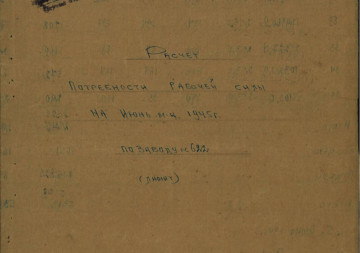 Расчет
Потребности рабочей силы
на июнь м-ц 1945г.
по заводу № 622
(лимит)